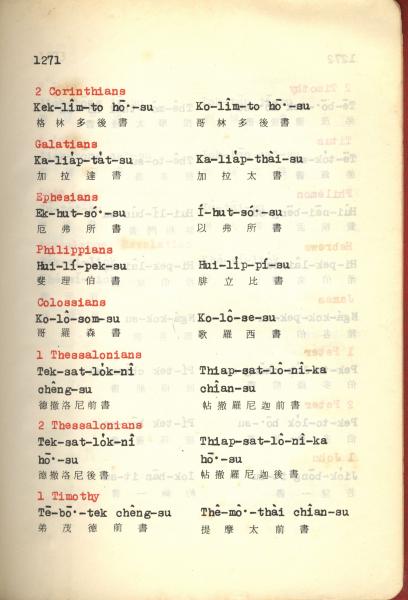 1271
2 Corinthians
Kek-lîm-to hō͘-su Ko-lîm-to hō͘-su
格林多後書 哥林多後書
Galatians
Ka-lia̍p-ta̍t-su Ka-lia̍p-thài-su
加拉達書 加拉太書
Ephesians
Ek-hut-só͘-su Í-hut-só͘-su
厄弗所書 以弗所書
Philippians
Hui-lí-pek-su Hui-li̍p-pí-su
斐理伯書 腓立比書
Colossians
Ko-lô-som-su Ko-lô-se-su
哥羅森書 歌羅西書
1 Thessalonians
Tek-sat-lo̍k-nî Thiap-sat-lô-nî-ka
chêng-su chîan-su
德撒洛尼前書 帖撒羅尼迦前書
2 Thessalonians
Tek-sat-lo̍k-nî Thiap-sat-lô-nî-ka
hō͘-su hō͘-su
德撒洛尼後書 帖撒羅尼迦後書
1 Timothy
Tē-bō͘-tek chêng-su Thê-mô͘-thài chîan-su
弟茂德前書 提摩太前書